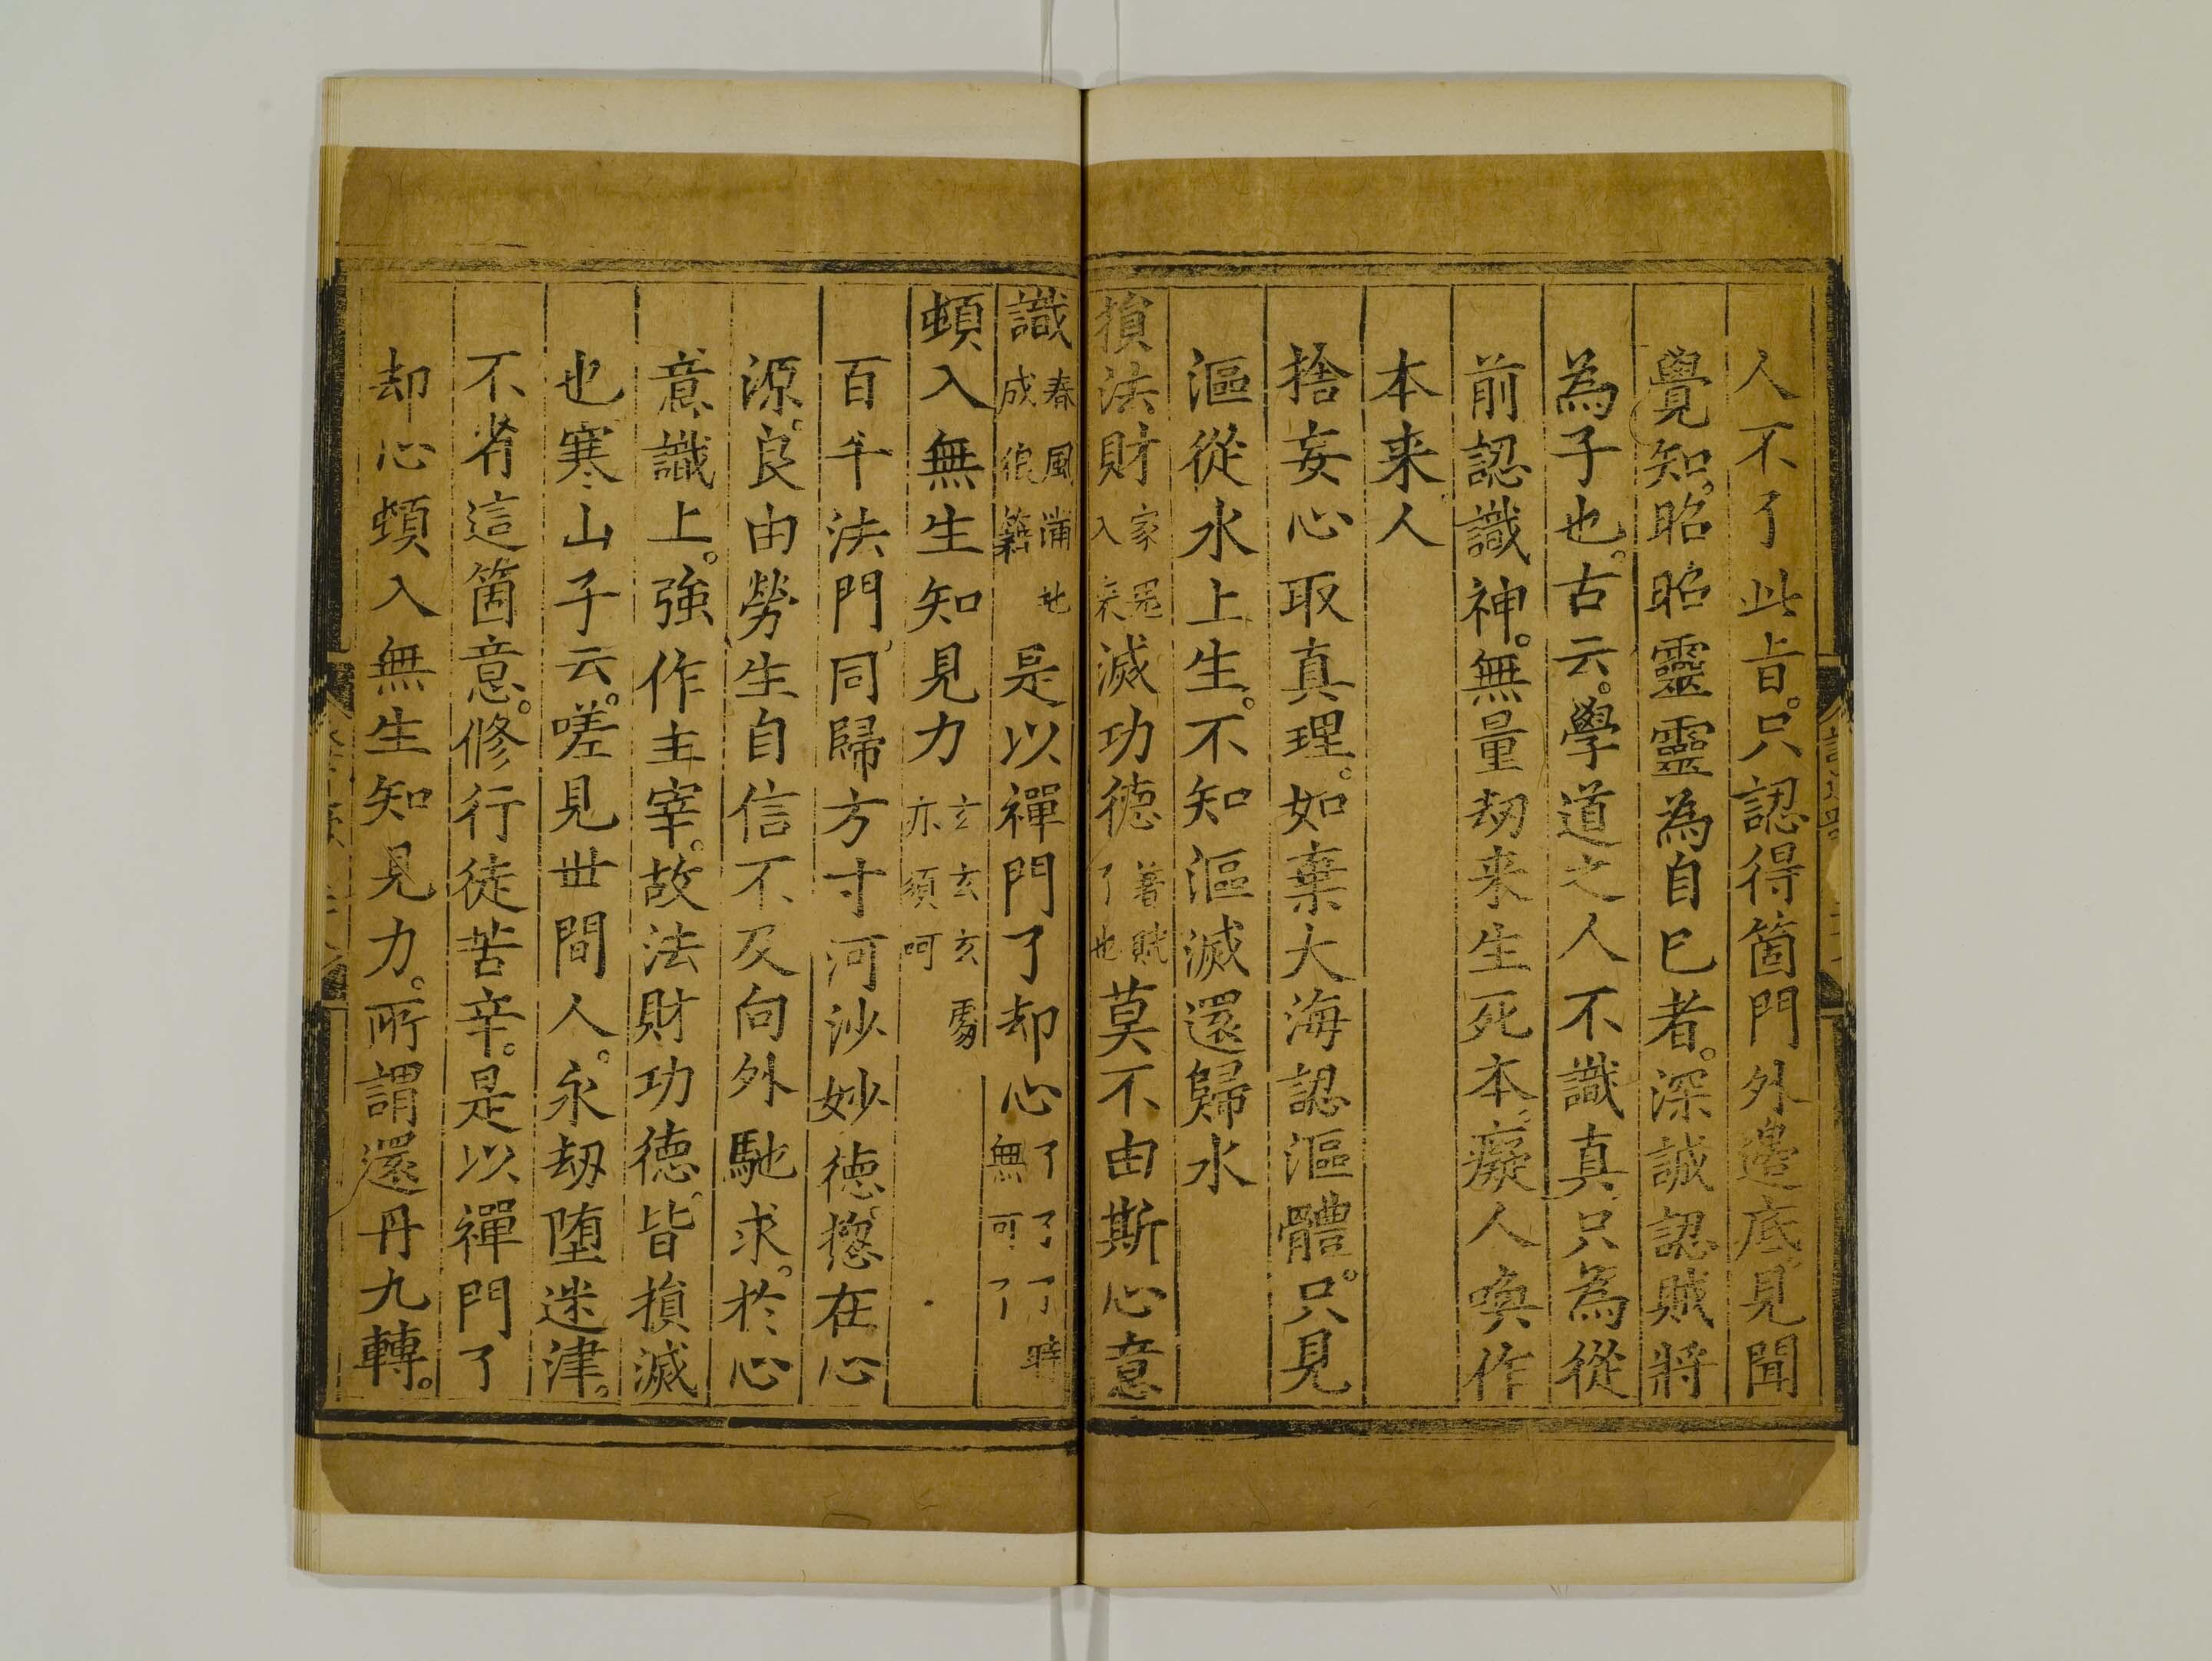 人不了此旨。只認得箇門外邊底。見聞
覺知。昭昭靈靈為自己者。深誠認賊將
為子也。古云。學道之人不識真只為從
前認識神。無量劫来生死本。癡人喚作
本来人
捨妄心取真理。如棄大海認漚體。只見
漚從水上生。不知漚滅還歸水
損法財家冤入来滅功德著賊了也莫不由斯心意
識春風滿地成狼籍是以禪門了却心了了了時無可了
頓入無生知見力玄玄玄處亦須呵
百千法門同歸方寸河沙妙德揔在心
源。良由勞生自信不及向外馳求。於心
意識上。強作主宰。故法財功德。皆損滅
也寒山子云。嗟見世間人。永劫堕迷津。
不省這箇意。修行徒苦辛。是以禪門了
却心頓入無生知見力。所謂還丹九轉。